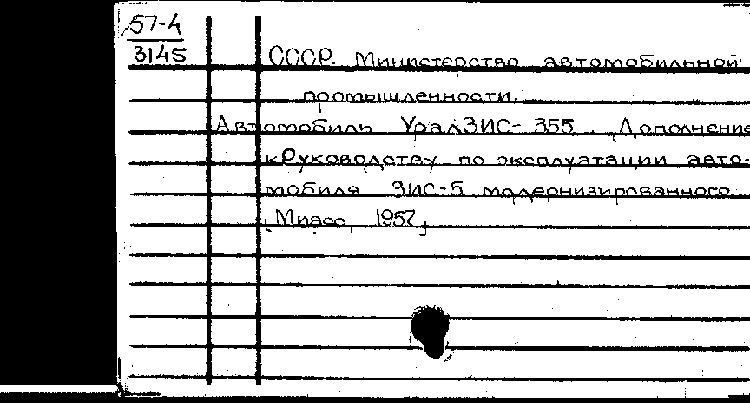 57-4
3145
СССР. Министерство автомобильной
промышленности.
Автомобиль УралЗИС-355. Дополнение
к Руководству по эксплуатации авто-
мобиля ЗИС-5 модернизированного.
[Миасс, 1957]